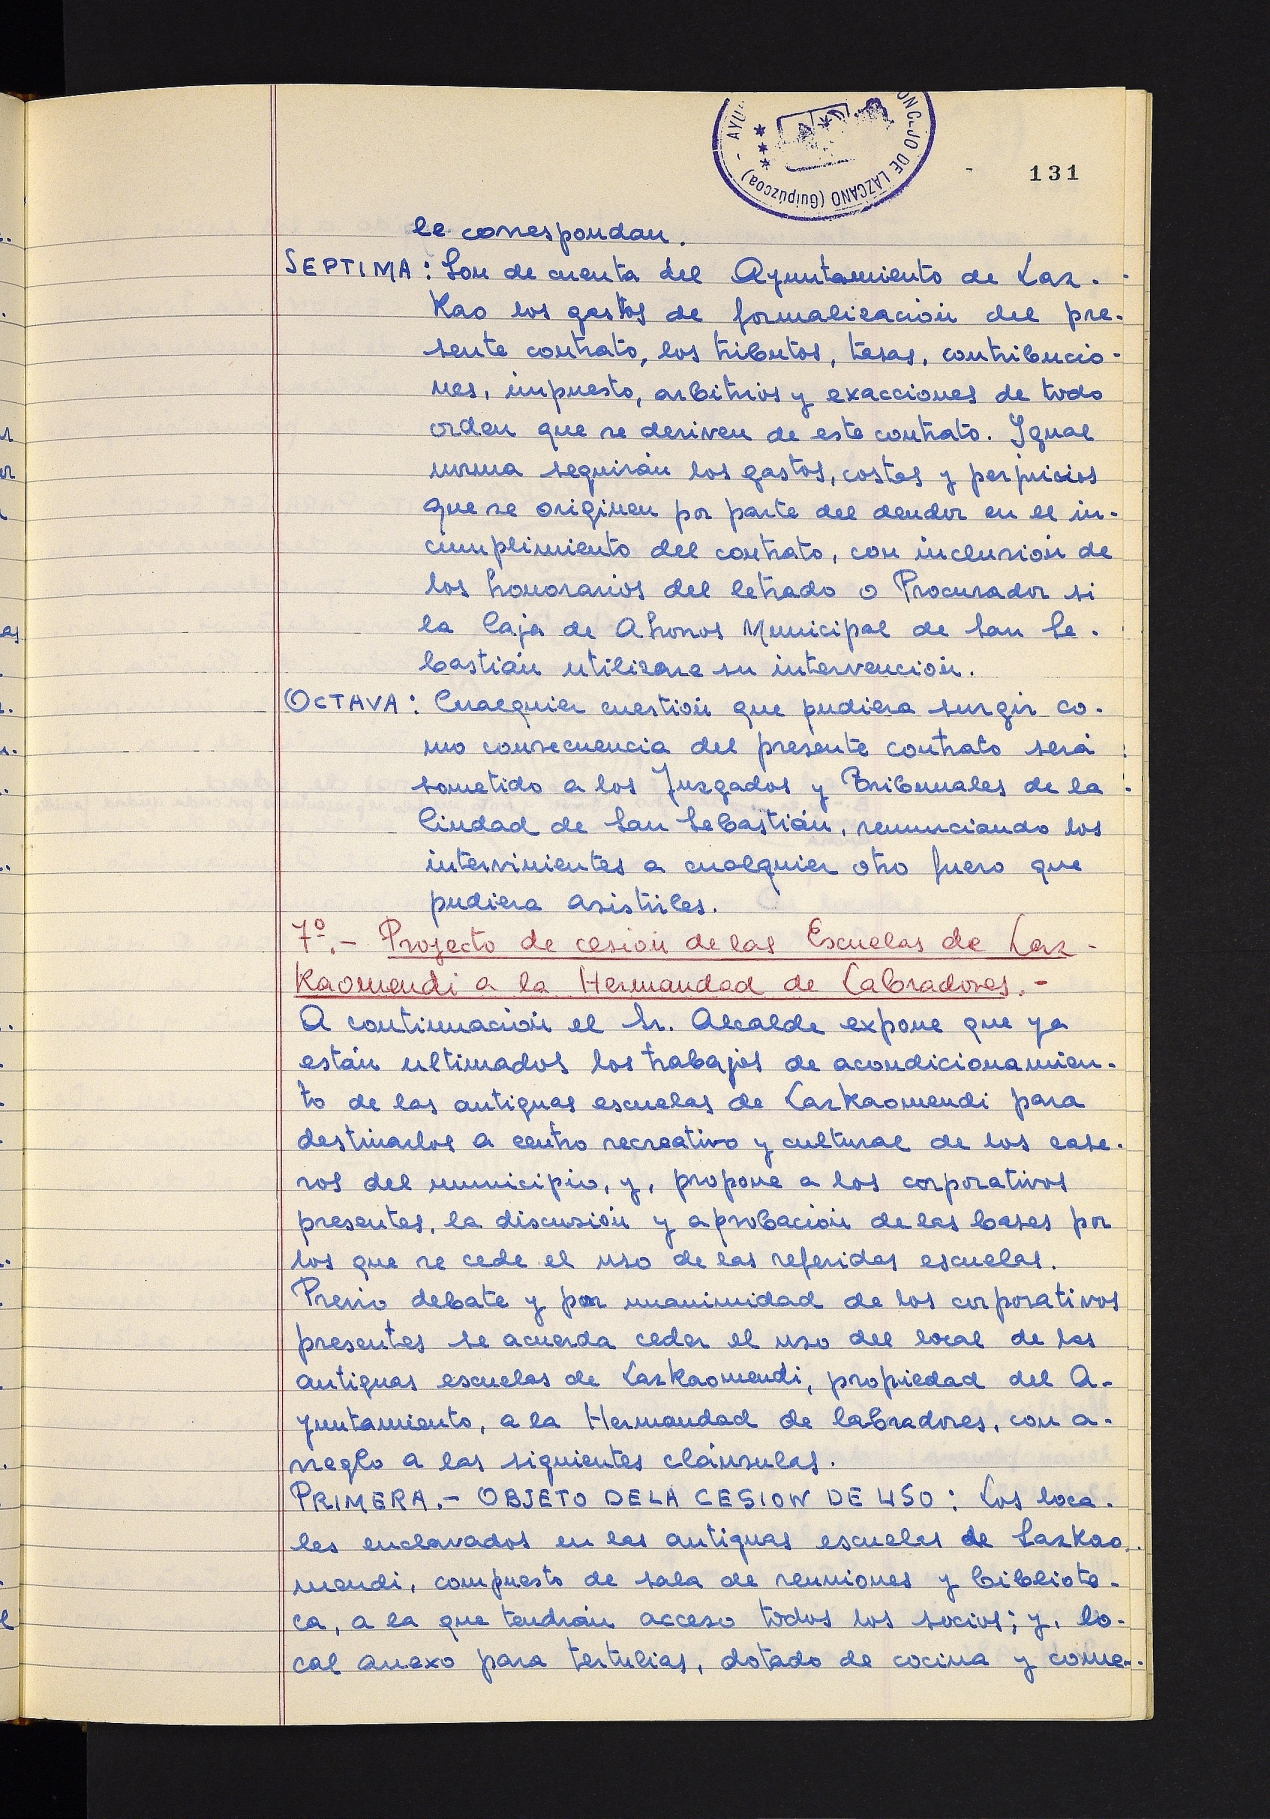 AYU
ONCEJO DE LAZCANO (Guipúzcoa) -
131
le correspondan.
SEPTIMA: Son de cuenta del Ayuntamiento de Laz-
kao los gastos de formalización del pre-
sente contrato, los tributos, tasas, contribucio-
nes, impuesto, arbitrios y exacciones de todo
orden que se deriven de este contrato. Igual
norma seguirán los gastos, costas y perjuicios
que se originen por parte del deudor en el in-
cumplimiento del contrato, con inclusión de
los honorarios del letrado o Procurador si
la Caja de Ahorros Municipal de San Se-
bastián utilizara su intervención.
OCTAVA: Cualquier cuestión que pudiera surgir co-
mo consecuencia del presente contrato será
sometido a los Juzgados y Tribunales de la
Ciudad de San Sebastián, renunciando los
intervinientes a cualquier otro fuero que
pudiera asistirles.
7º.- Proyecto de cesión de las Escuelas de Laz-
kaomendi a la Hermandad de Labradores.-
A continuación el Sr. Alcalde expone que ya
están ultimados los trabajos de acondicionamien-
to de las antiguas escuelas de Lazkaomendi para
destinarlos a centro recreativo y cultural de los case-
ros del municipio, y, propone a los corporativos
presentes, la discusión y aprobación de las bases por
los que se cede el uso de las referidas escuelas.
Previo debate y por unanimidad de los corporativos
presentes se acuerda ceder el uso del local de las
antiguas escuelas de Lazkaomendi, propiedad del A-
yuntamiento, a la Hermandad de labradores, con a-
rreglo a las siguientes cláusulas.
PRIMERA.- OBJETO DE LA CESION DE USO: Los loca-
les enclavados en las antiguas escuelas de Lazkao-
mendi, compuesto de sala de reuniones y bibliote-
ca, a la que tendrán acceso todos los socios; y, lo-
cal anexo para tertulias, dotado de cocina y come-